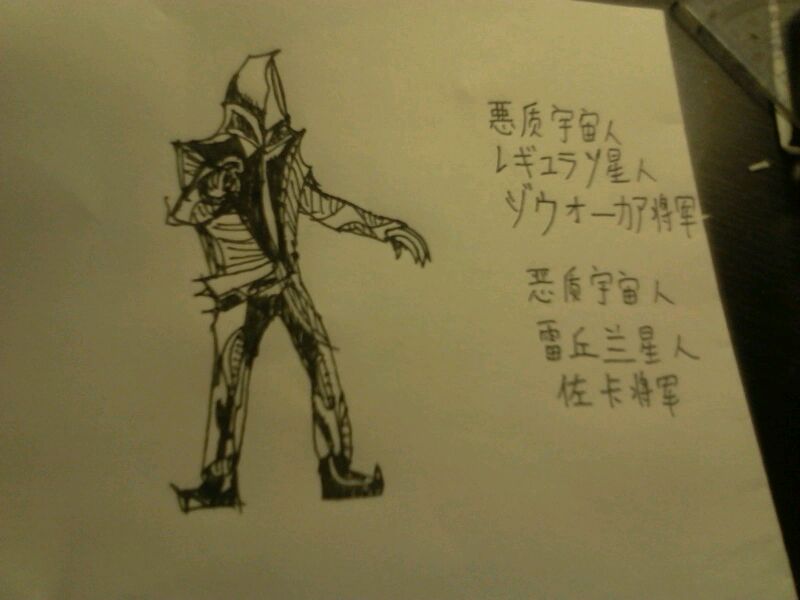 悪质宇宙人
レギュラソ星人
ゾウォーカア将軍
恶质宇宙人
雷丘兰星人
佐卡将军